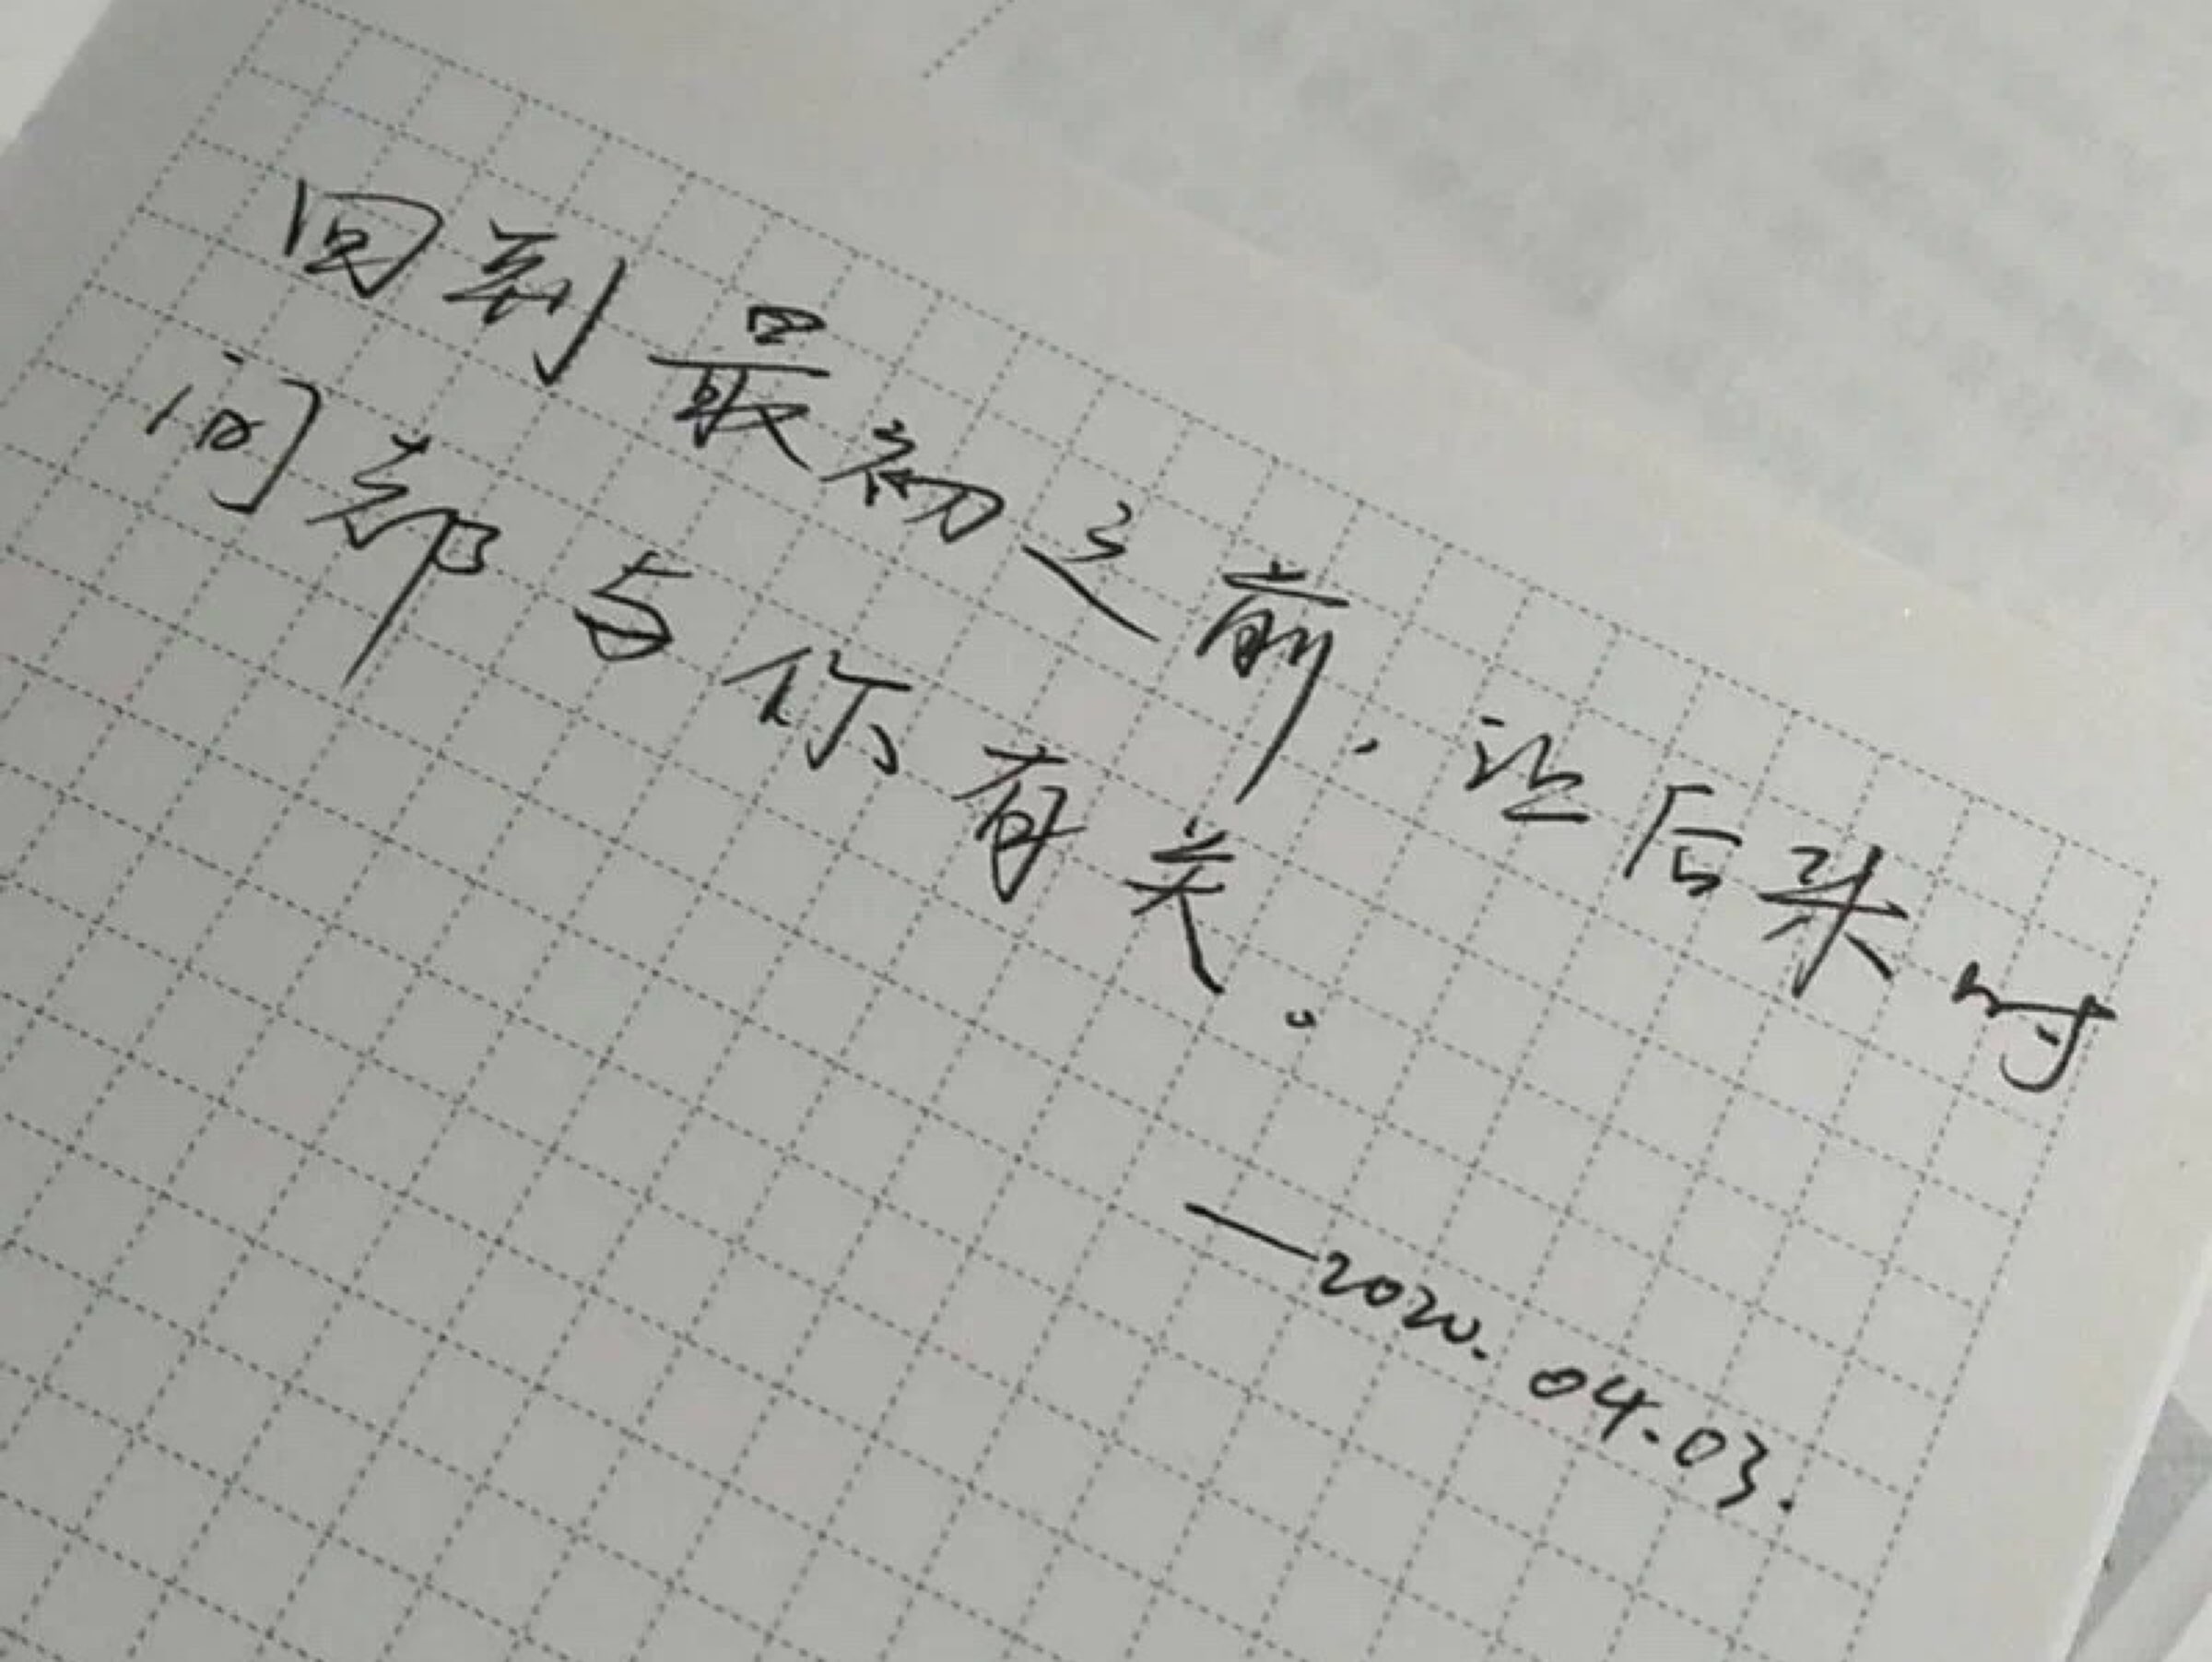 回到最初之前，让后来时
间都与你有关。
—2020.04.03.